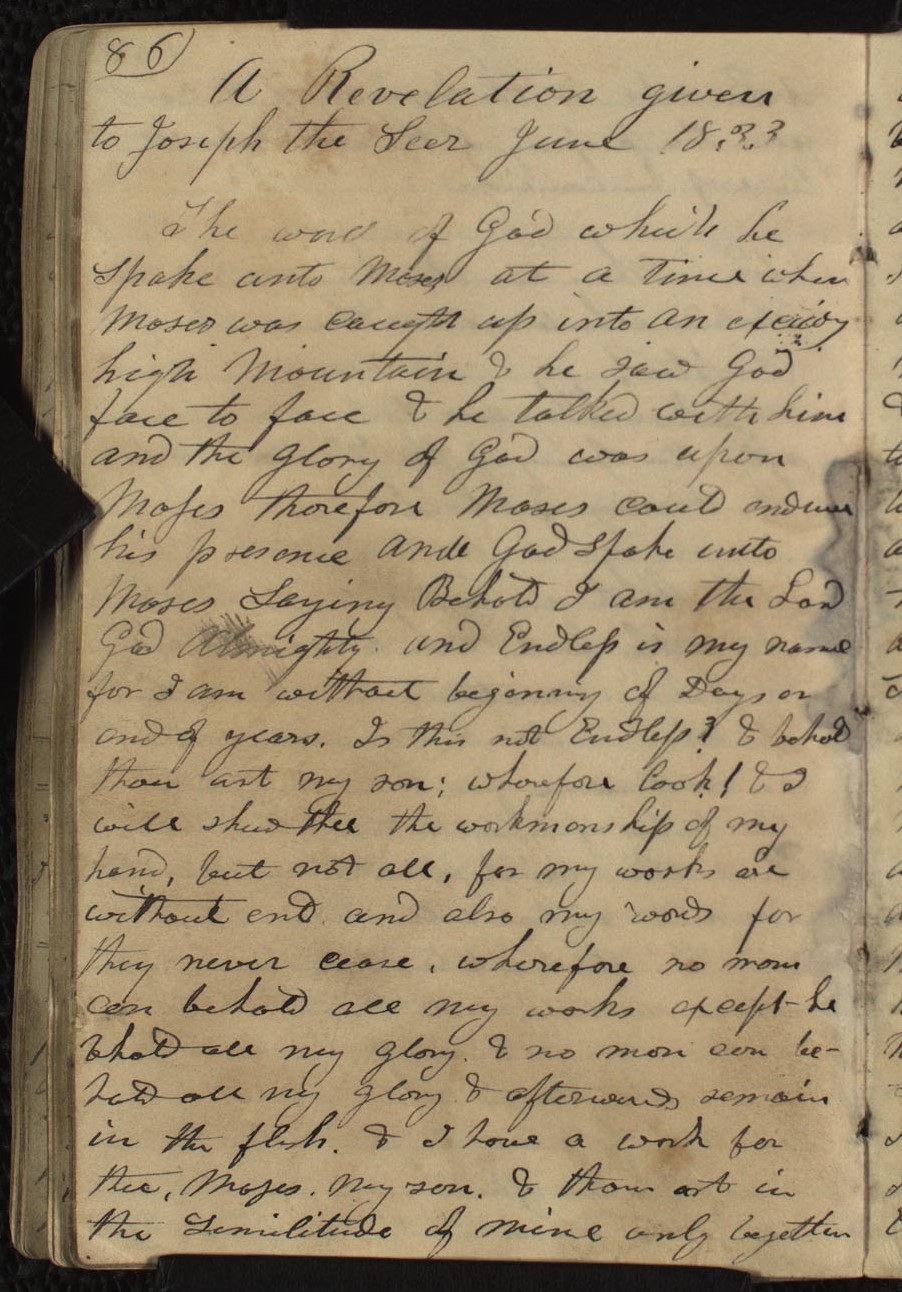 86
A Revelation given
to Joseph the Seer June 1833
The word of God which he
Spake unto Moses at a time when
Moses was caught up into an
high Mountain & he saw God
face to face & he talked with him
and the glory of God was upon
Moses therefore Moses could endure
his presence and God Spake unto
Moses Saying Behold I am the Lord
God Almighty. and Endless is my name
for I am without beginning of Days or
end of years. Is this not Endless? & behold
thou art my son; wherefore look! & I
will shew thee the workmanship of my
hand, but not all, for my works are
without end. and also my words for
they never cease. wherefore no man
can behold all my works except he
bhold all my glory. & no man can be-
hold all my glory & afterwards remain
in the flesh. & I have a work for
thee, Moses. my son. & thou art in
the Similitude of mine only begotten